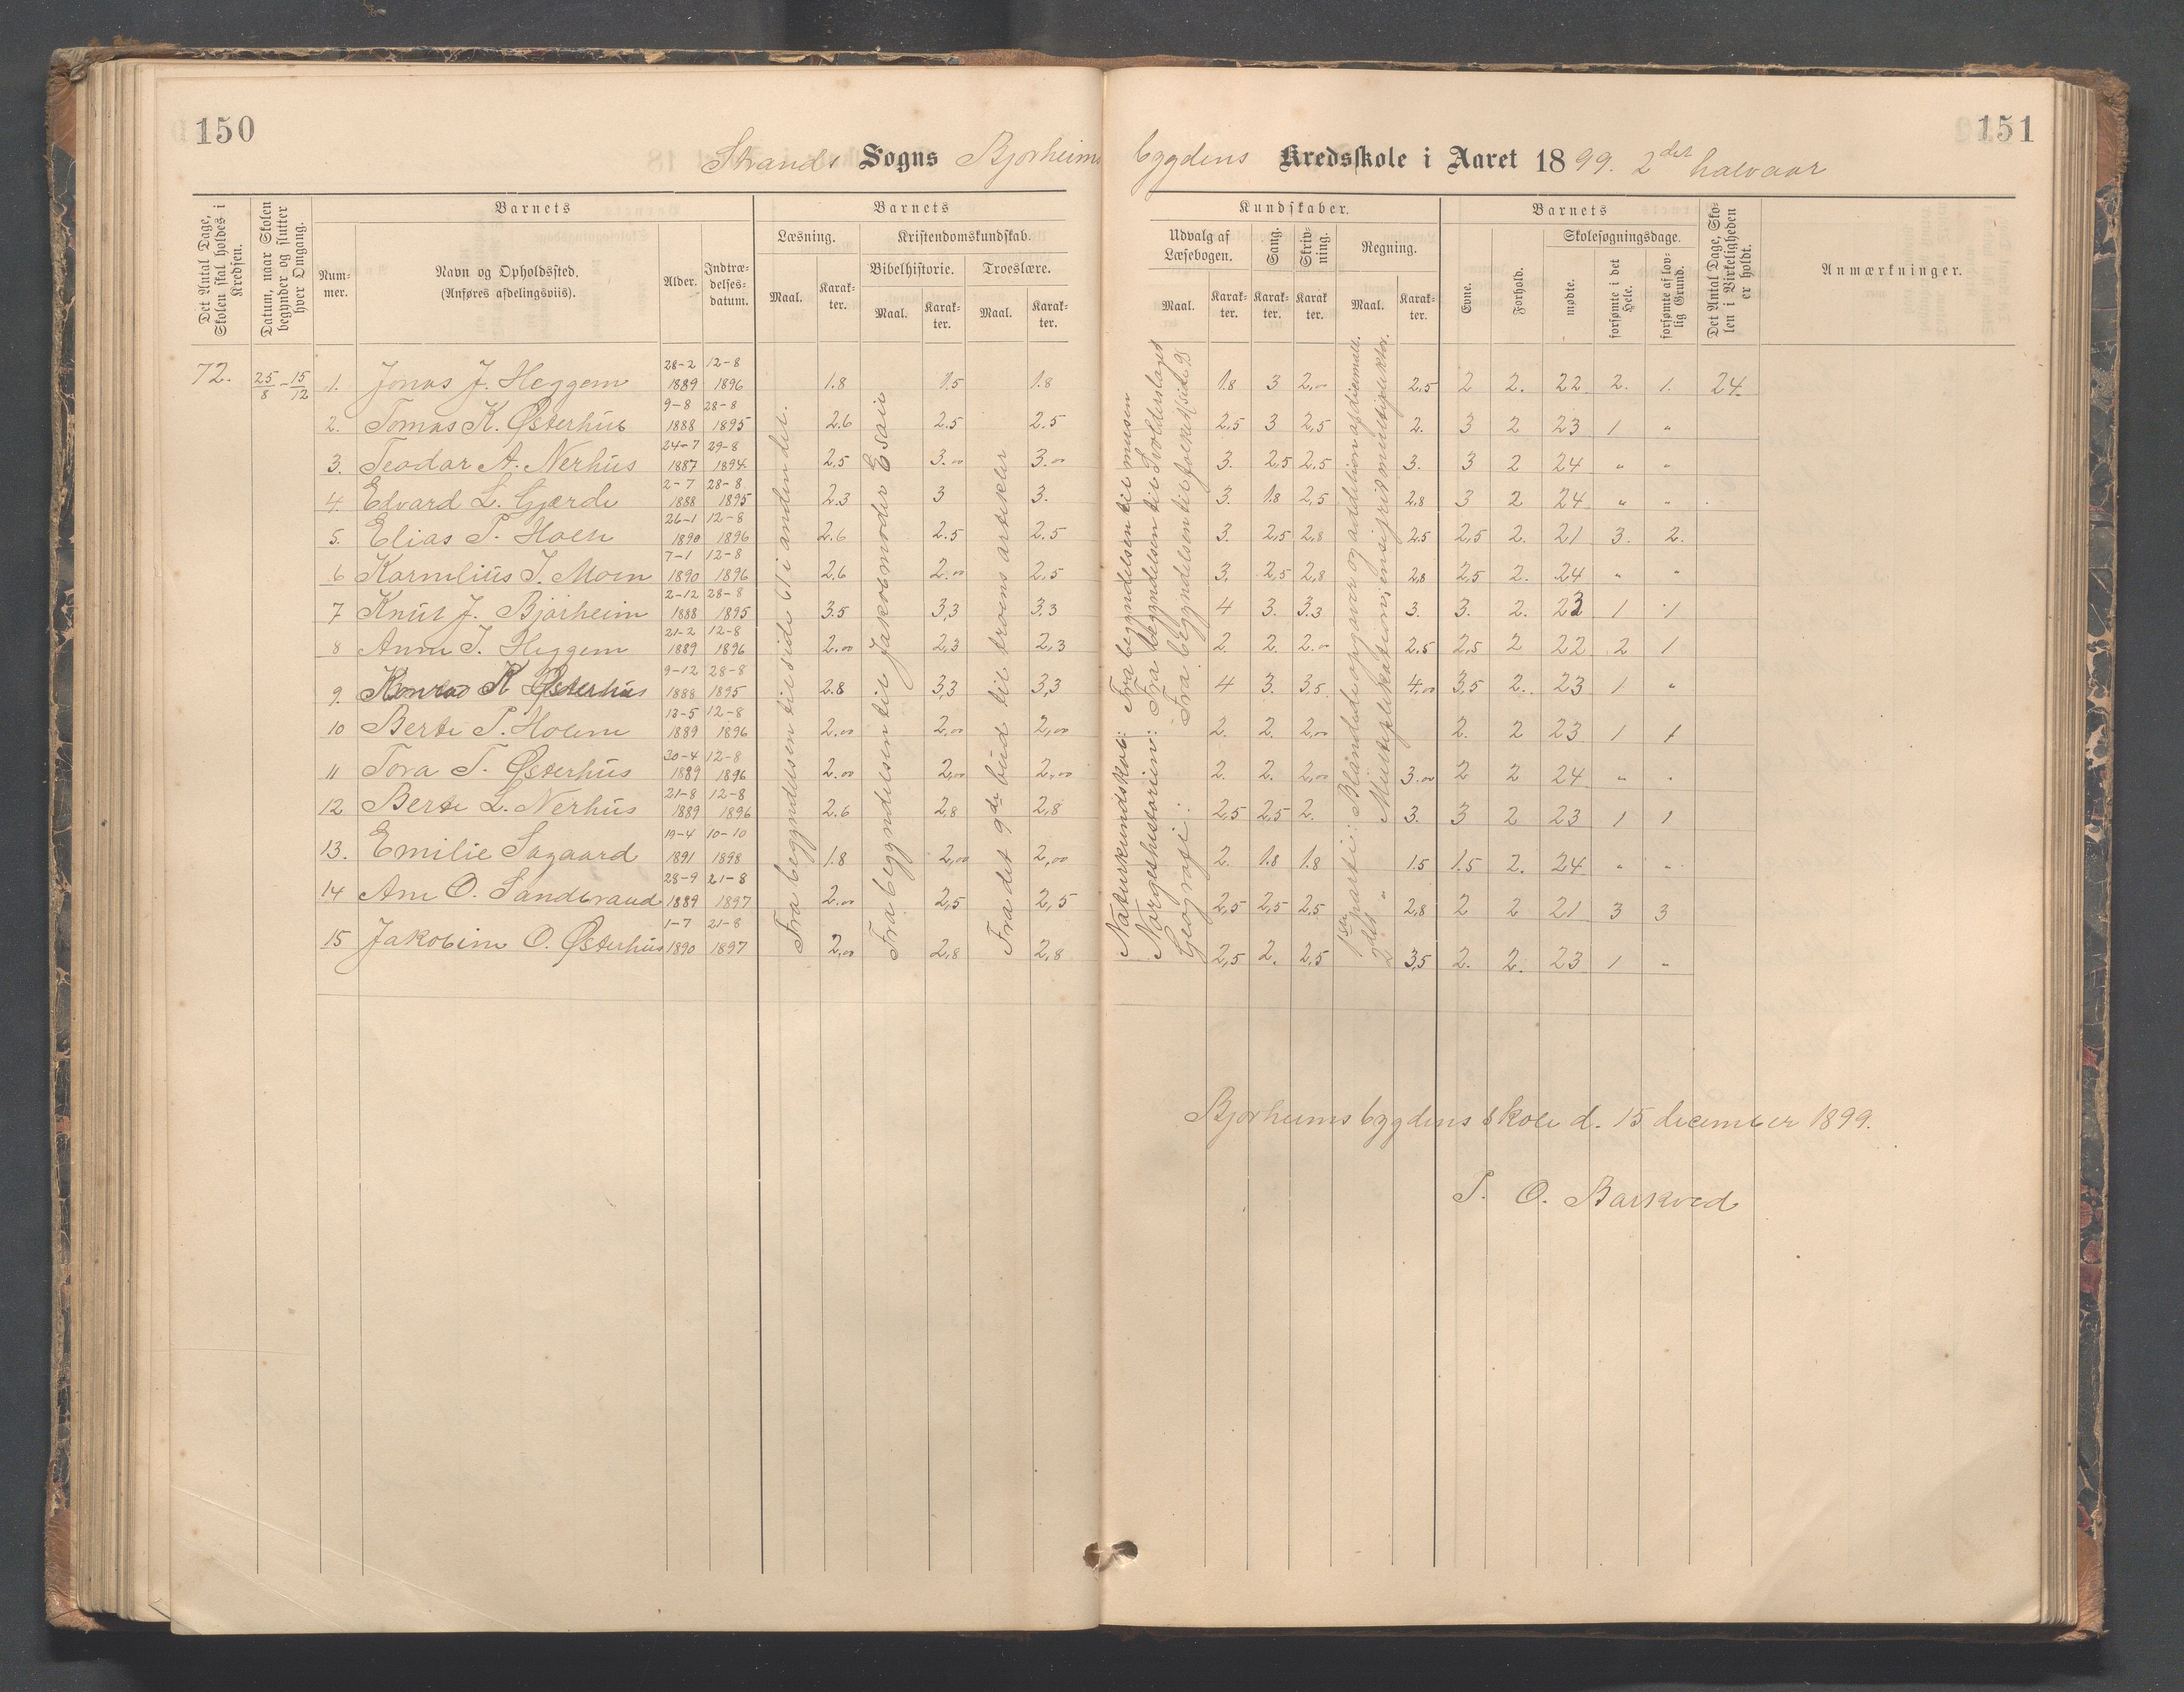 150
151
Strands Sogns Bjorheims bygdens Kredsskole i Aaret 1899. 2det halvaar
Det Antal Dage, Skolen skal holdes i Kredsen.
Datum, naar Skolen begynder og slutter hver Omgang.
Barnets
Num-mer.
Navn og Opholdssted. (Anføres afdelingsviis).
Alder.
Indtræ-delses-datum.
Barnets
Læsning.
Kristendomskundskab.
Bibelhistorie. Troeslære.
Maal. Karak-ter. Maal. Karak-ter. Maal. Karak-ter.
Kundskaber.
Udvalg af Læsebogen. Sang. Skriv-ning. Regning.
Maal. Karak-ter. Karak-ter. Karak ter. Maal. Karak-ter.
Barnets
Evne. Forhold.
Skolesøgningsdage.
mødte. forsømte i det Hele. forsømte af lov-lig Grund.
Det Antal Dage, Sko-len i Virkeligheden er holdt.
Anmærkninger.
72. 25/8 - 15/12
1. Jonas J. Heggem 28-2 1889 12-8 1896 1.8 1.5 1.8 1.8 3 2,00 2.5 2 2. 22 2. 1. 24.
2. Tomas K. Østerhus 9-8 1888 28-8 1895 2.6 2.5 2.5 2,5 3 2,5 2. 3 2 23 1 "
3. Teodor A. Nerhus 24-7 1887 29-8 1894 2.5 3.00 3.00 3. 2,5 2.5 3. 3 2 24 " "
4. Edvard L. Gjærde 2-7 1888 28-8 1895 2.3 3 3. 3. 1.8 2,5 2,8 3 2 24 " "
5. Elias T. Holen 26-1 1890 12-8 1896 2.6 2.5 2.5 3. 2,5 2,8 2.5 2,5 2. 21 3. 2.
6 Karnelius T. Moen 7-1 1890 12-8 1896 2.6 2.00 2,5 3. 2,5 2,8 2,8 2,5 2. 24 " "
7 Knut J. Bjorheim 2-12 1888 28-8 1895 3.5 3,3 3.3 4 3. 3.3 3. 3. 2. 23 1 1
8 Anna T. Heggem 21-2 1889 12-8 1896 2.00 2,3 2,3 2. 2. 2.00 2.5 2,5 2 22 2 1
9. Konrad K Østerhus 9-12 1888 28-8 1895 2.8 3,3 3,3 4 3. 3,5 4.00 3,5 2. 23 1 "
10 Berte T. Holem 13-5 1889 12-8 1896 2.00 2,00 2,00 2. 2. 2,00 2. 2 23 1 1
11 Tora T. Østerhus 30-4 1889 12-8 1896 2.00 2,00 2,00 2. 2. 2,00 3.00 2 2 24 " "
12 Berte L. Nerhus 21-8 1889 12-8 1896 2.6 2,8 2,8 2,5 2,5 2. 3. 3 2 23 1 1
13. Emilie Sagaard 19-4 1891 10-10 1898 1.8 2,00 2,00 2. 1.8 1.8 1.5 1.5 2. 24 " "
14 Ane O. Sandbraud 28-9 1889 21-8 1897 2.00 2,5 2,5 2,5 2,5 2,5 2,8 2 2 21 3 3
15 Jakobine O. Østerhus 1-7 1890 21-8 1897 2,00 2,8 2,8 2,5 2. 2,5 3,5 2. 2. 23 1 "
Fra begyndelsen til side 61 i anden del.
Fra begyndelsen til Jakobs moder Esau
Fra det 9de bud til troens artikler
Naturkundskab: Fra begyndelsen til musen
Norgeshistorien: Fra begyndelsen til Svolderslaget
Geografi: Fra begyndelsen til folket (side 98
1ste parti: Blandede opgaver og addition af dicimalt.
2det " Multiplikation, ensifret multiplikator.
Bjorheimsbygdens skole d. 15 december 1899.
T. O. Barkved